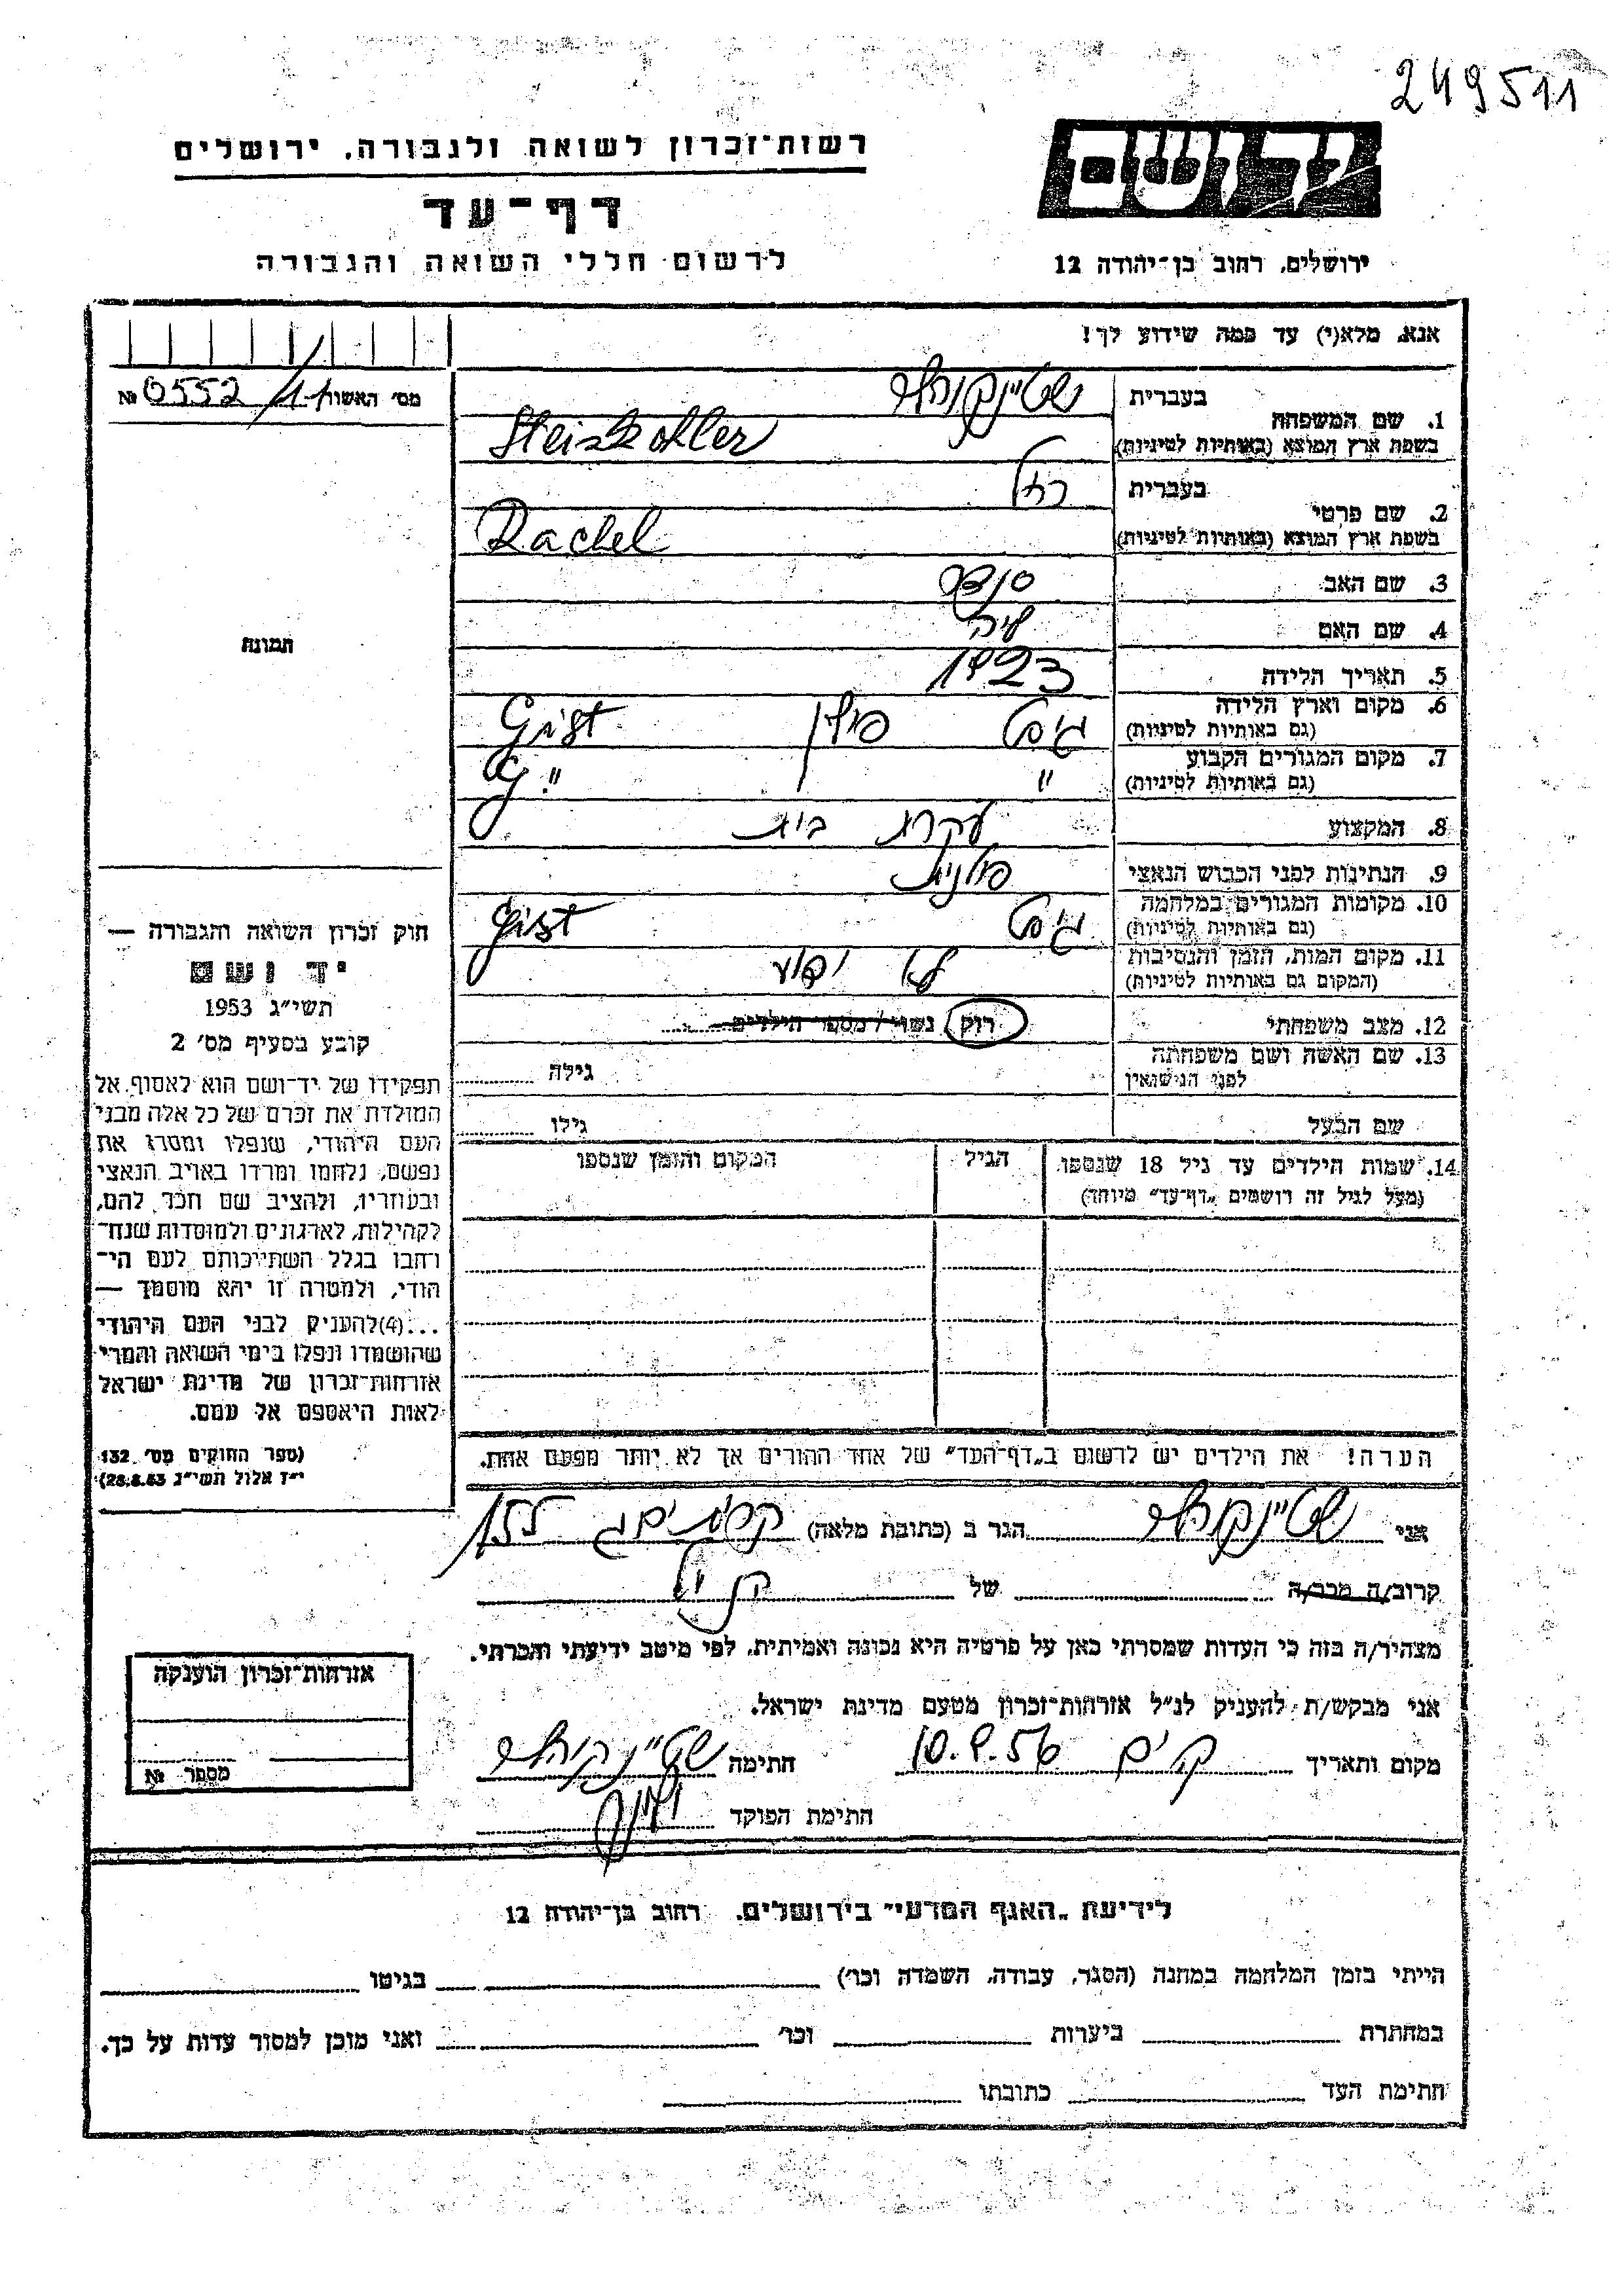 249511
יד ושם
רשות־זכרון לשואה ולגבורה, ירושלים
דף־עד
לרשום חללי השואה והגבורה
ירושלים, רחוב בן־יהודה 12
אנא, מלא(י) עד כמה שידוע לך!
מס׳ האשור 0552/11 №
1. שם המשפחה
בעברית
בשפת ארץ המוצא (באותיות לטיניות) Steinkohler
2. שם פרטי
בעברית רחל
בשפת ארץ המוצא (באותיות לטיניות) Rachel
3. שם האב
4. שם האם
5. תאריך הלידה 1923
6. מקום וארץ הלידה פולין
(גם באותיות לטיניות)
7. מקום המגורים הקבוע " "
(גם באותיות לטיניות)
8. המקצוע עקרת בית
9. הנתינות לפני הכבוש הנאצי פולנית
10. מקומות המגורים במלחמה
(גם באותיות לטיניות)
11. מקום המות, הזמן והנסיבות לא ידוע
(המקום גם באותיות לטיניות)
12. מצב משפחתי רוק נשוי / מספר הילדים
13. שם האשה ושם משפחתה
לפני הנישואין
גילה
שם הבעל גילו
14. שמות הילדים עד גיל 18 שנספו הגיל המקום והזמן שנספו
(מעל לגיל זה רושמים „דף־עד״ מיוחד)
הערה! את הילדים יש לרשום ב„דף־העד״ של אחד ההורים אך לא יותר מפעם אחת.
תמונה
חוק זכרון השואה והגבורה —
יד ושם
תשי״ג 1953
קובע בסעיף מס׳ 2
תפקידו של יד־ושם הוא לאסוף אל
המולדת את זכרם של כל אלה מבני
העם היהודי, שנפלו ומסרו את
נפשם, נלחמו ומרדו באויב הנאצי
ובעוזריו, ולהציב שם וזכר להם,
לקהילות, לארגונים ולמוסדות שנח־
רחבו בגלל השתייכותם לעם הי־
הודי, ולמטרה זו יהא מוסמך —
...(4)להעניק לבני העם היהודי
שהושמדו ונפלו בימי השואה והמרי
אזרחות־זכרון של מדינת ישראל
לאות היאספם אל עמם.
(ספר החוקים מס׳ 132,
י״ז אלול תשי״ג 28.8.53)
אני הגר ב (כתובת מלאה) 155
קרוב/ה מכר/ה של
מצהיר/ה בזה כי העדות שמסרתי כאן על פרטיה היא נכונה ואמיתית, לפי מיטב ידיעתי והכרתי.
אני מבקש/ת להעניק לנ״ל אזרחות־זכרון מטעם מדינת ישראל.
מקום ותאריך 10.9.56 חתימה
חתימת הפוקד
אזרחות־זכרון הוענקה
מספר №
לידיעת „האגף המדעי״ בירושלים, רחוב בן־יהודה 12
הייתי בזמן המלחמה במחנה (הסגר, עבודה, השמדה וכר׳) בגיטו
במחתרת ביערות וכר׳ ואני מוכן למסור עדות על כך.
חתימת העד כתובתו